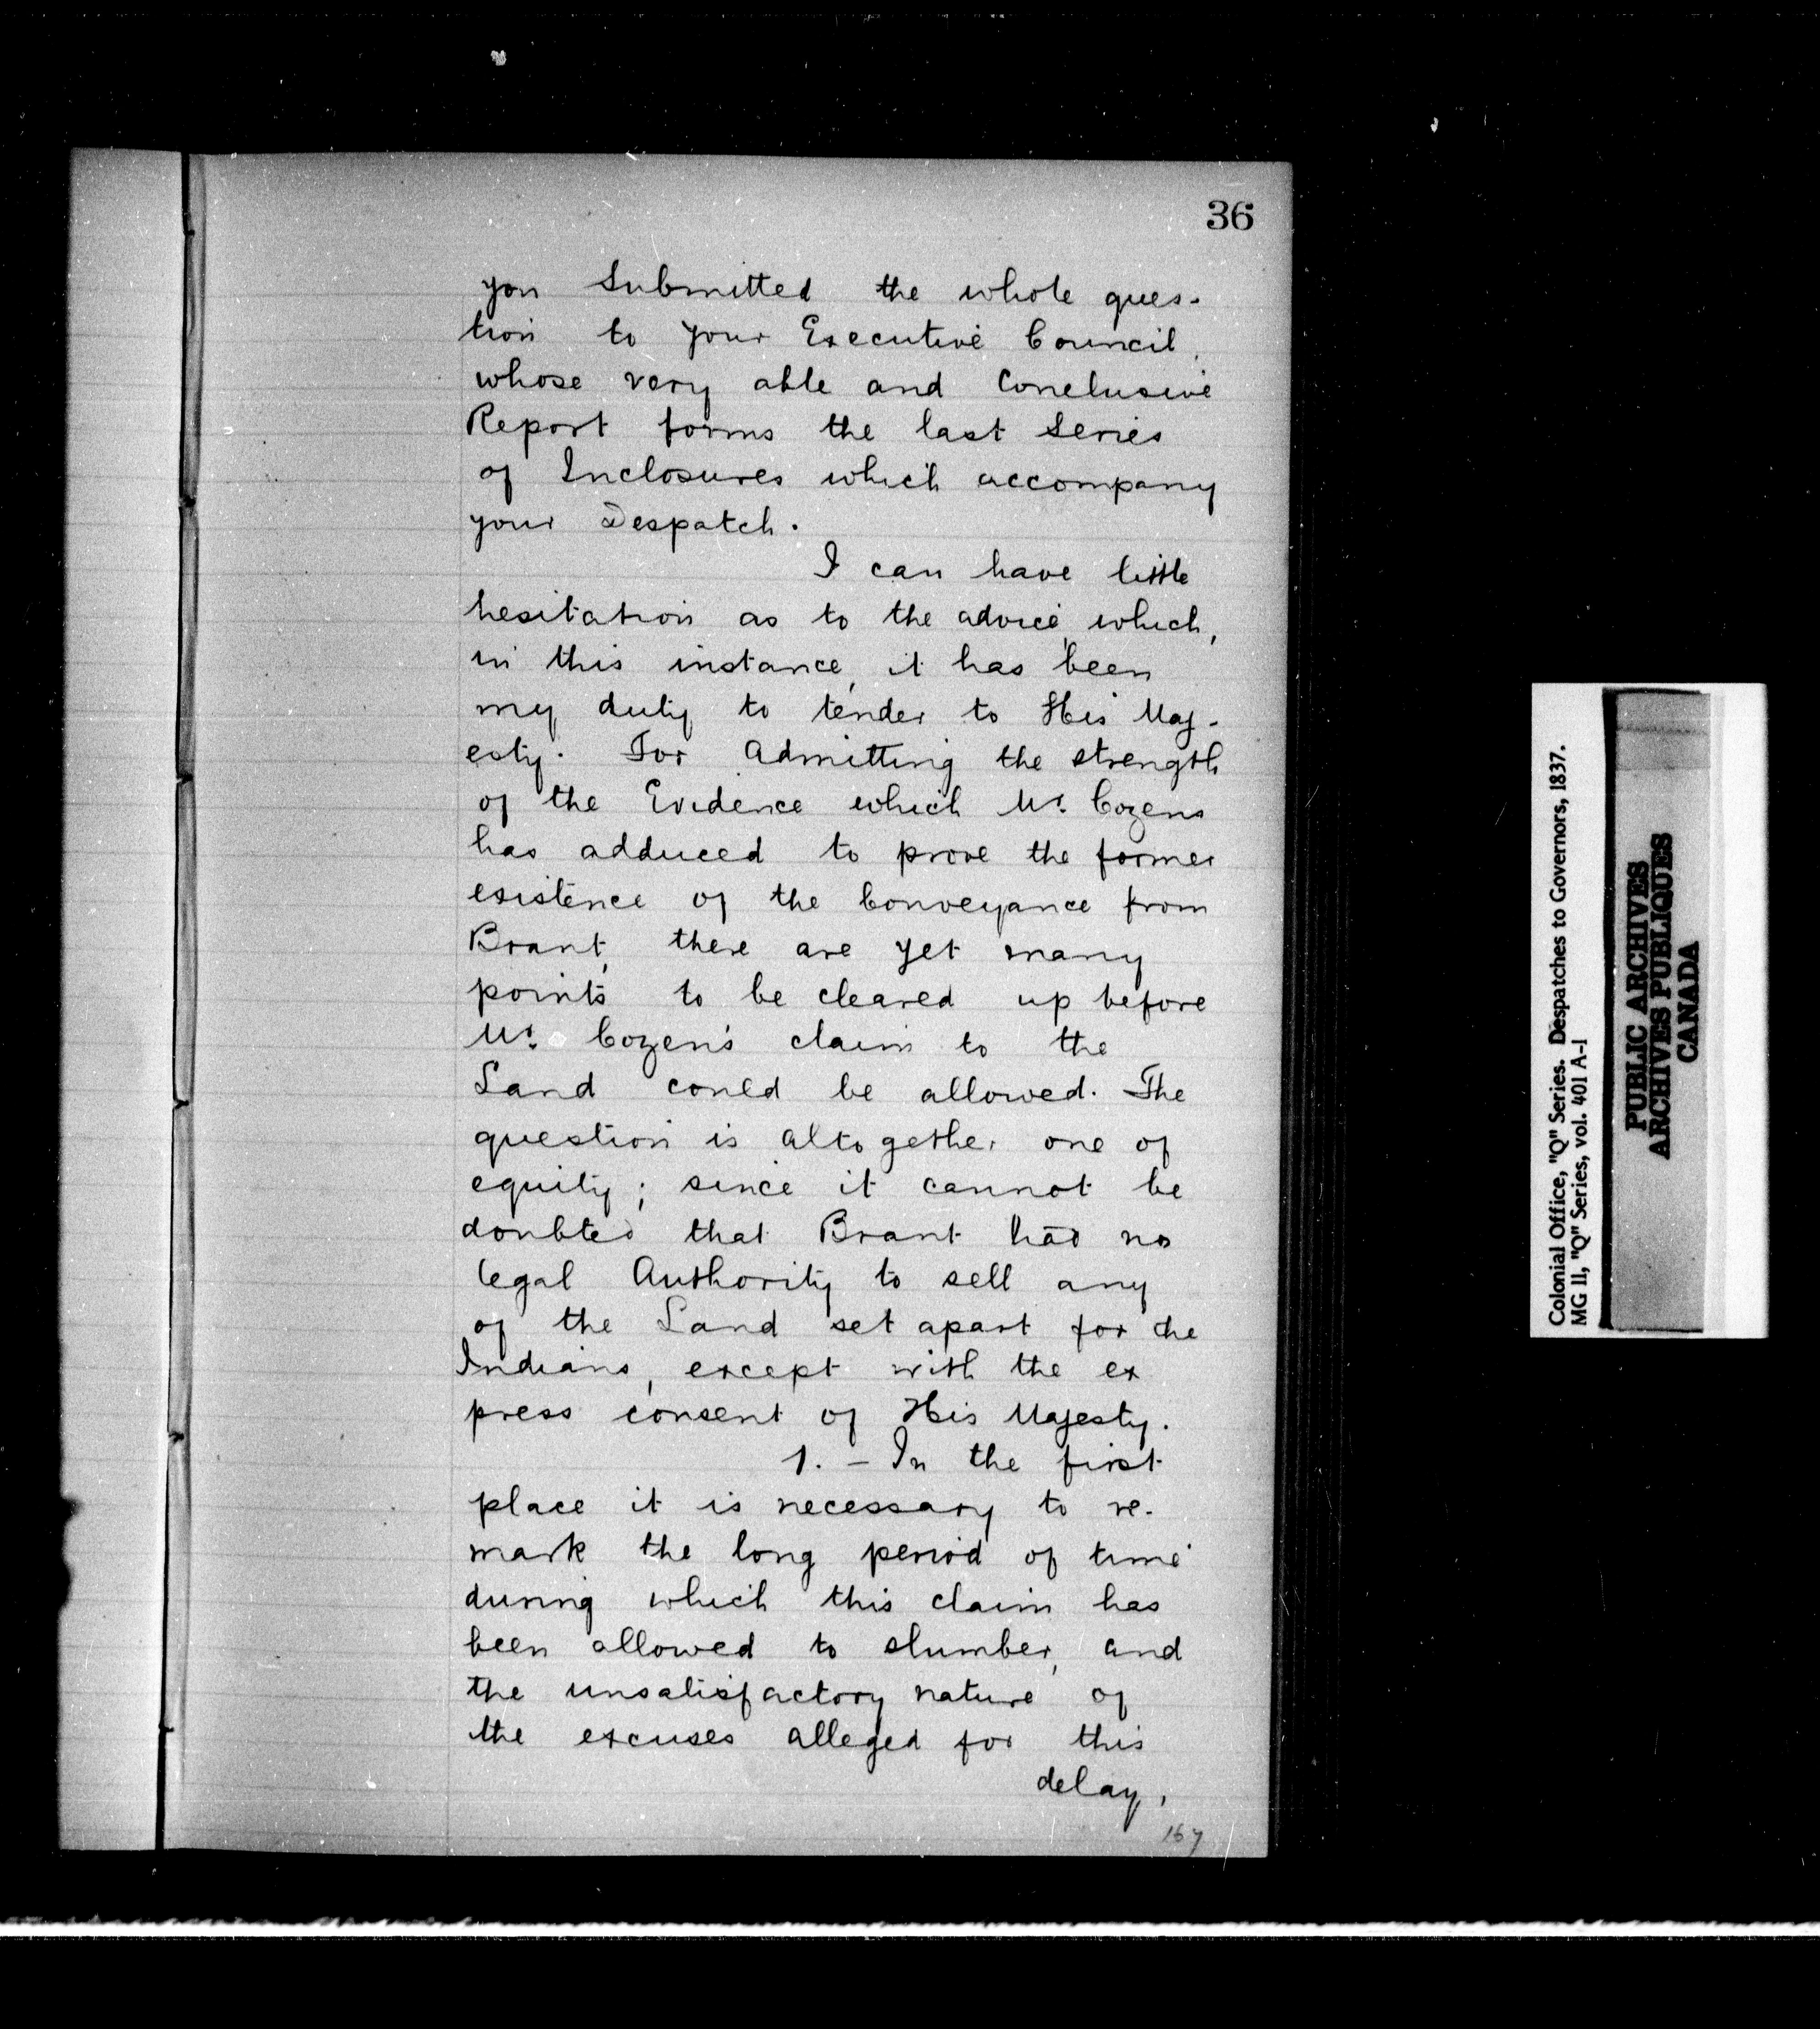 36
you Submitted the whole ques-
tion to your Executive Council,
whose very able and Conclusive
Report forms the last Series
of Inclosures which accompany
your Despatch.
I can have little
hesitation as to the advice, which,
in this instance, it has been
my duty to tender to His Maj-
esty. For admitting the strength
of the Evidence which Mr. Cozens
has adduced to prove the former
existence of the Conveyance from
Brant, there are yet many
points to be cleared up before
Mr. Cozen's claim to the
Land could be allowed. The
question is altogether one of
equity; since it cannot be
doubted that Brant had no
legal Authority to sell any
of the Land set apart for the
Indians, except with the ex
press consent of His Majesty.
1. - In the first
place it is necessary to re-
mark the long period of time
during which this claim has
been allowed to slumber, and
the unsatisfactory nature of
the excuses alleged for this
delay,
167
Colonial Office, "Q" Series. Despatches to Governors, 1837.
MG 11, "Q" Series, vol. 401 A-1
PUBLIC ARCHIVES
ARCHIVES PUBLIQUES
CANADA